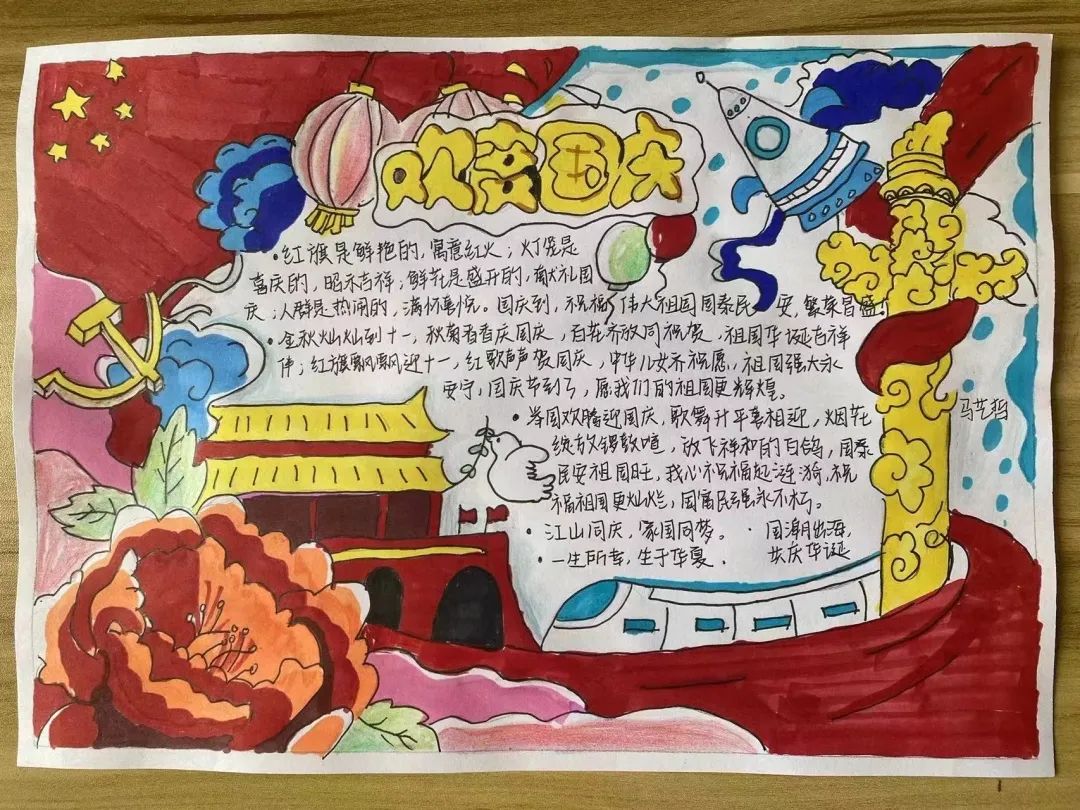 欢度国庆
·红旗是鲜艳的,寓意红火;灯笼是
喜庆的,昭示吉祥;鲜花是盛开的,献礼国
庆;人群是热闹的,满怀喜悦。国庆到,祝福伟大祖国国泰民安,繁荣昌盛!
·金秋灿灿到十一,秋菊香香庆国庆,百花齐放同祝贺,祖国华诞吉祥
伴;红旗飘飘迎十一,红歌声声贺国庆,中华儿女齐祝愿,祖国强大永
安宁;国庆节到了,愿我们的祖国更辉煌。
·举国欢腾迎国庆,歌舞升平喜相迎,烟花
绽放锣鼓喧,放飞祥和的白鸽,国泰
民安祖国旺,我心祝福起涟漪,祝
福祖国更灿烂,国富民强永不朽。
·江山同庆,家国同梦。
·一生所幸,生于华夏.
·国潮出海,
共庆华诞